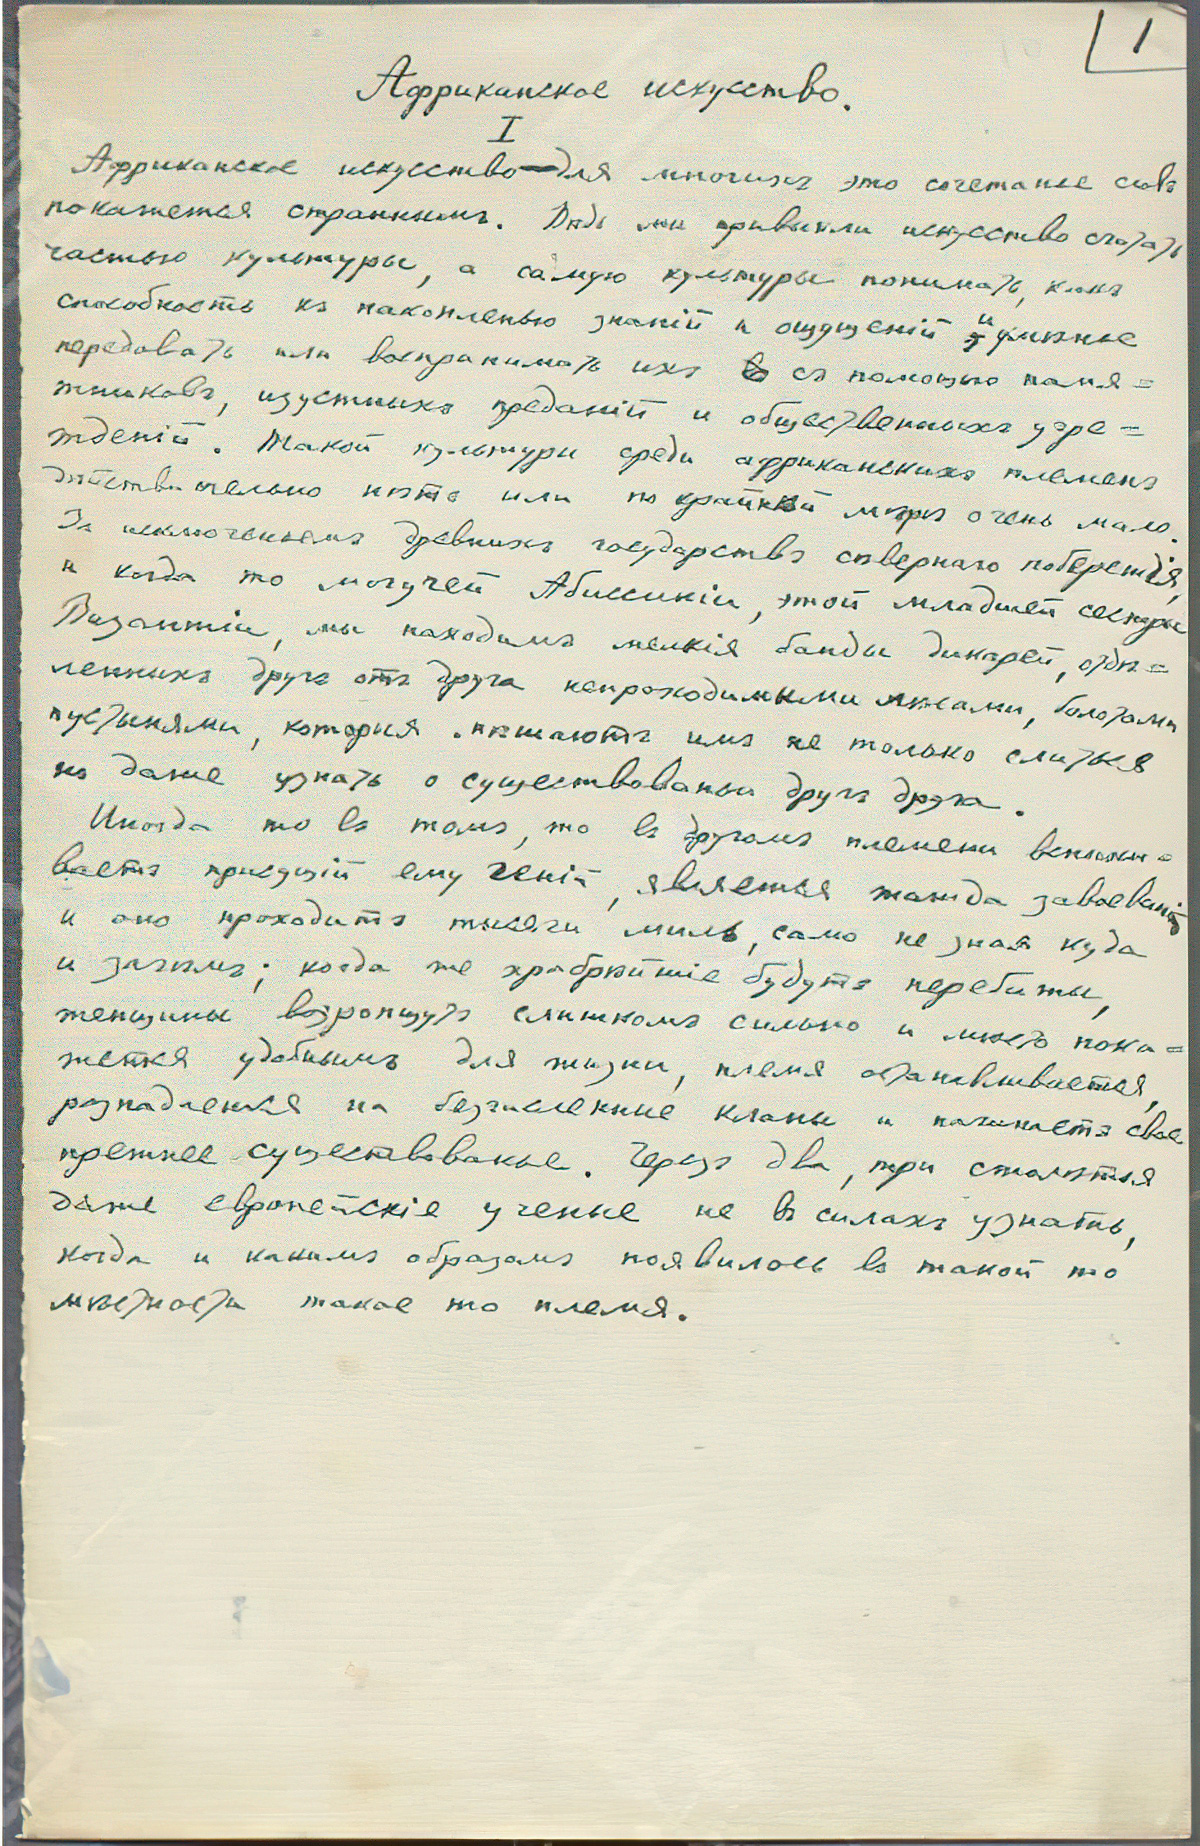 1
Африканское искусство.
I
Африканское искусство—для многихъ это сочетанье словъ
покажется страннымъ. Вѣдь мы привыкли искусство считать
частью культуры, а самую культуры понимать, какъ
способность къ накопленью знаній и ощущеній и умѣнье
передовать или воспринимать ихъ съ помощью памя=
тниковъ, изустныхъ преданій и общественныхъ учре=
жденій. Такой культуры среди африканскихъ племенъ
дѣйствительно нѣтъ или по крайней мѣрѣ очень мало.
За исключеньемъ древнихъ государствъ сѣвернаго побережія,
и когда то могучей Абиссиніи, этой младшей сестры
Византіи, мы находимъ мелкія банды дикарей, отдѣ=
ленныхъ другъ отъ друга непроходимыми лѣсами, болотами
пустынями, которыя мѣшаютъ имъ не только слиться
но даже узнать о существованьи другъ друга.
Иногда то въ томъ, то въ другомъ племени вспыхи=
ваетъ присущій ему геній, является жажда завоеваній
и оно проходитъ тысячи миль, само не зная куда
и зачѣмъ; когда же храбрѣйшіе будутъ перебиты,
женщины возропщутъ слишкомъ сильно и мѣсто пока=
жется удобнымъ для жизни, племя останавливается,
распадается на безчисленные кланы и начинаетъ свое
прежнее существованье. Черезъ два, три столѣтья
даже европейскіе ученые не въ силахъ узнать,
когда и какимъ образомъ появилось въ такой то
мѣстности такое то племя.